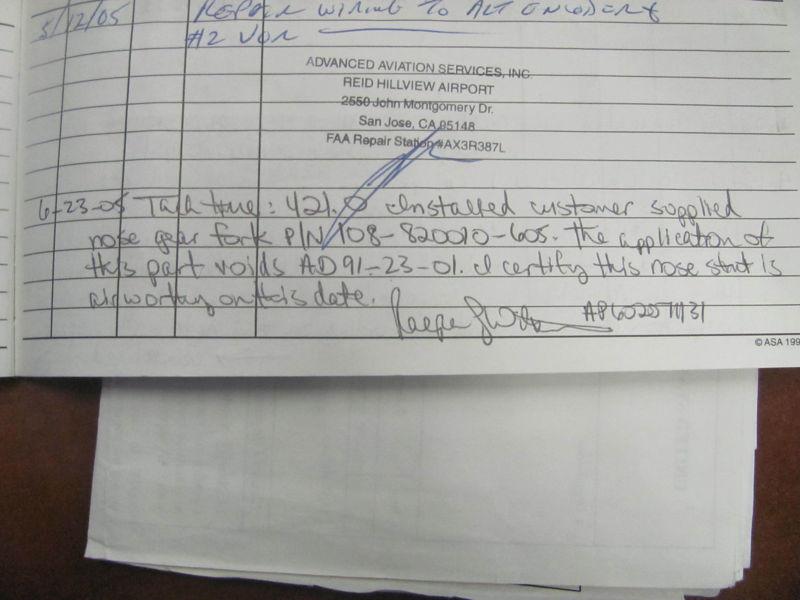 5/12/05 REPAIR WIRING TO ALT ENCODER &
#2 VOR
ADVANCED AVIATION SERVICES, INC.
REID HILLVIEW AIRPORT
2550 John Montgomery Dr.
San Jose, CA 95148
FAA Repair Station #AX3R387L
6-23-05 Tach time: 421.0 Installed customer supplied
nose gear fork P/N 108-820010-605. The application of
this part voids AD 91-23-01. I certify this nose strut is
airworthy on this date.
© ASA 199